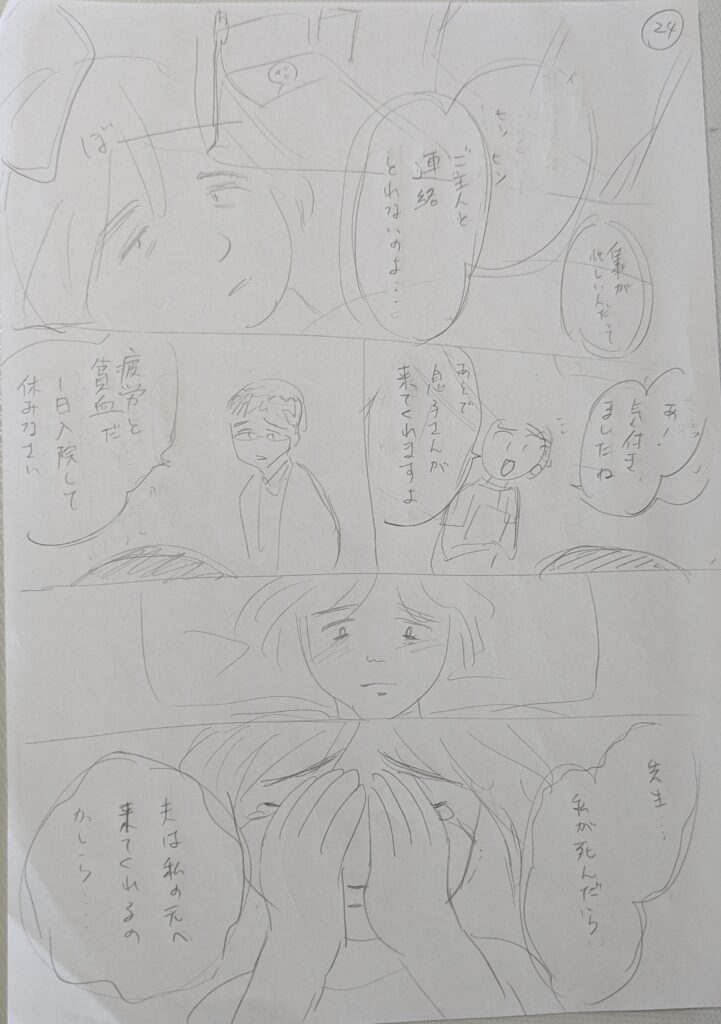 24
ヒソ
ヒソ
ご主人と
連絡
とれないのよ…
仕事が
忙しいんだって
ぼ
あ!
気付き
ましたね
あとで
息子さんが
来てくれますよ
疲労と
貧血だ
1日入院して
休みなさい
先生…
私が死んだら
夫は私の元へ
来てくれるの
かしら…